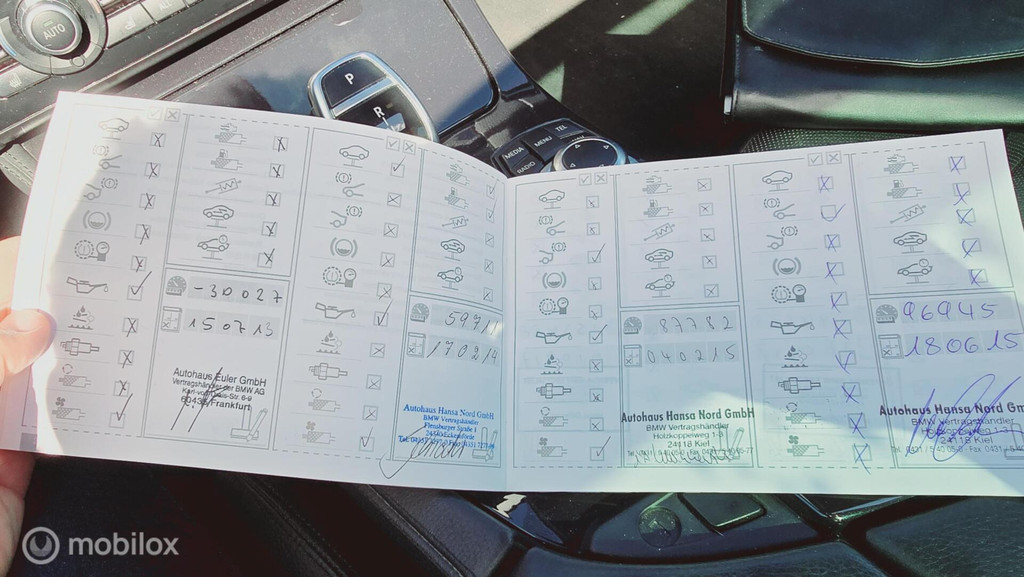 AUTO
P
R
MEDIA
MENU
TEL
RADIO
-30027
150713
Autohaus Euler GmbH
Vertragshändler der BMW AG
Frankfurt
5971
170214
Autohaus Hansa Nord GmbH
BMW Vertragshändler
Flensburger Straße 1
87782
040215
Autohaus Hansa Nord GmbH
BMW Vertragshändler
Holzkoppelweg 1-3
24118 Kiel
96945
180615
Autohaus Hansa Nord Gm
BMW Vertragshändler
24118 Kiel
mobilox